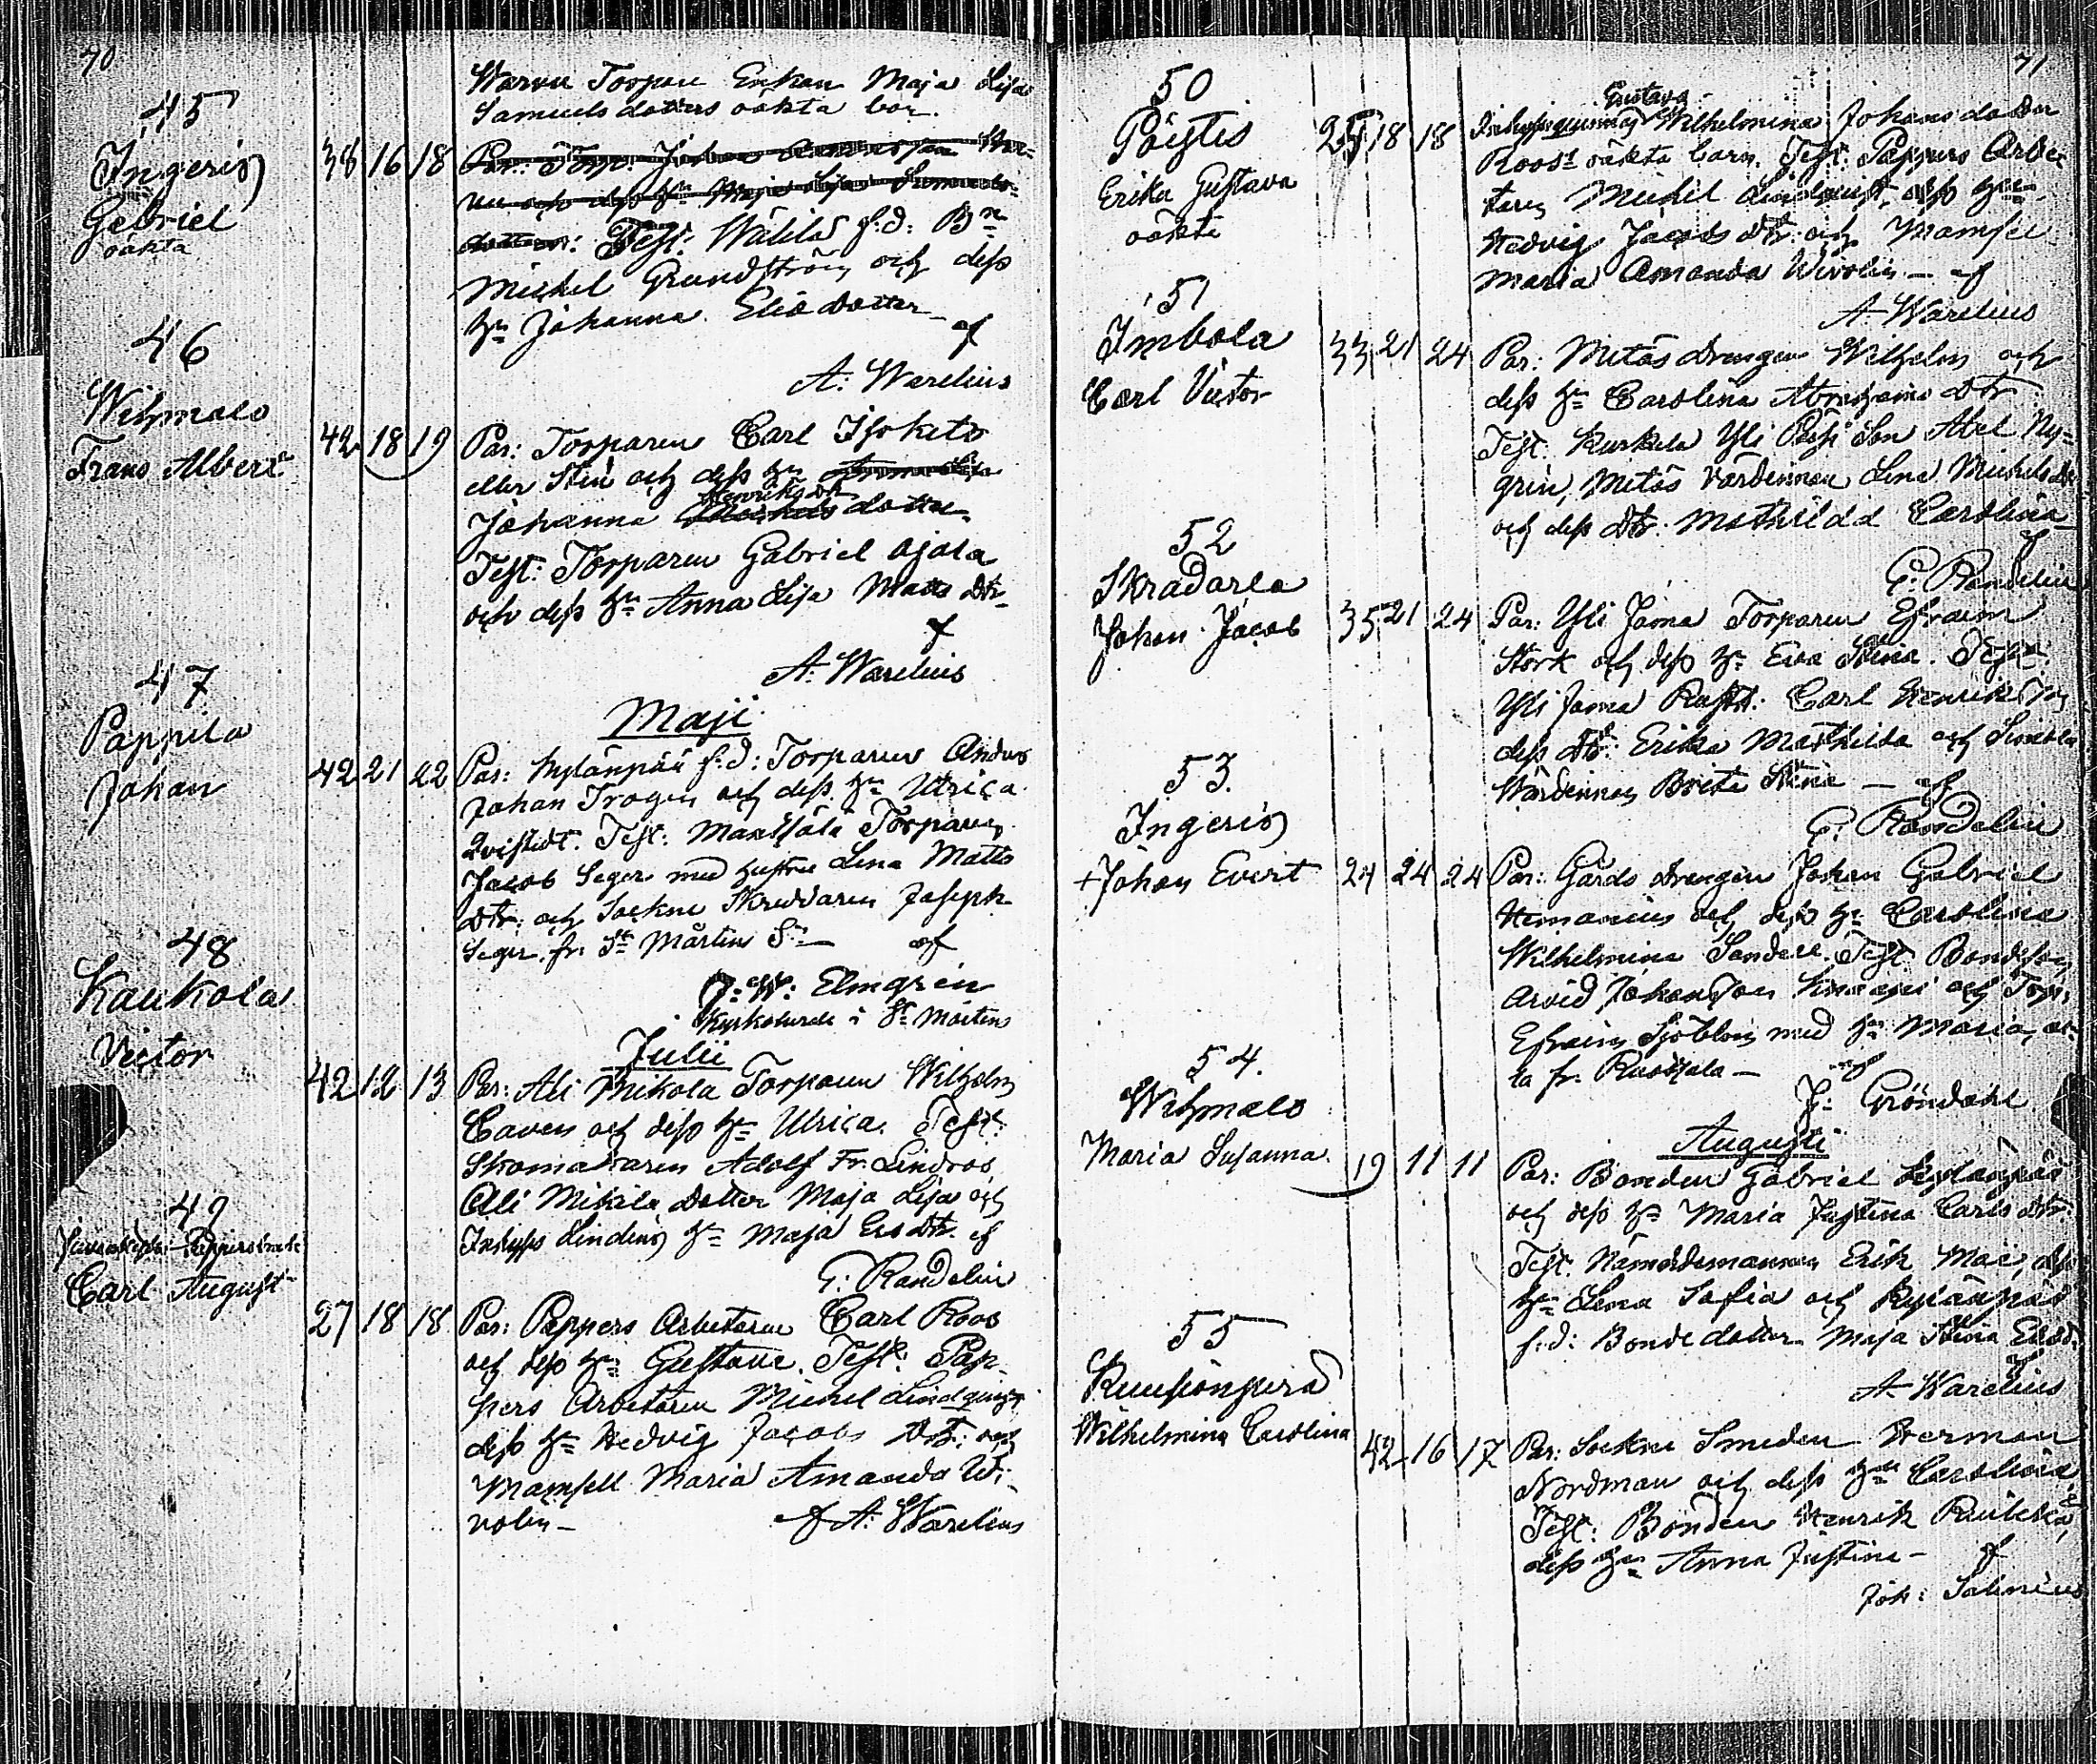 70
45
Ingeris
Gabriel
oäkta
38 16 18
Warvu Torpare Enkan Maja Lisa
Samuels dotters oäkta barn.
Par: Torp. Johan
Maja Lisa Samuels
Test: Wälilä f.d. Bn
Michel Grundström och dess
hu Johanna Elias dotter
af
A: Warelius
46
Wihmalo
Frans Albert
42 18 19
Par: Torparen Carl
eller Sten och dess hu
Johanna Henriks dr dotter
Test: Torparen Gabriel Ojala
och dess hu Anna Lisa Matts dtr
af
A: Warelius
Maji
47
Pappila
Johan
42 21 22
Par: Kylänpää f.d: Torparen Anders
Johan Trogen och dess hu Ulrica
Qvistedt. Test: Torparen
Jacob Seger med hustru Lena Matts
dtr och Sockne Skreddaren Joseph
Seger fr. St Mårtens Sn — af
J: W: Elmgrén
Kyrkoherde i St Mårtens
Julii
48
Kaukola
Victor
42 12 13
Par: Ali Mikola Torparen Wilhelm
Caven och dess hu Ulrica. Test:
Skomakaren Adolf Fr. Lindros
Ali Mikola Dotter Maja Lisa och
Inhyss Lindens hu Maja Ers dtr. af
G: Randelin
49
Pappersbruk
Carl August
27 18 18
Par: Pappers Arbetaren Carl Roos
och dess hu Gustava. Test: Pap-
pers Arbetaren Michel Lindqvist
dess hu Hedvig Jacobs dtr. och
Mamsell Maria Amanda Wi-
volin —
af A: Warelius
71
50
Pöytis
Erika Gustava
oäkta
25 18 18
Gustava
Inhysesqvinnan Wilhelmina Johans dotter
Roos' oäkta barn. Test: Pappers Arbe-
taren Michel Lindqvist, dess hu
Hedvig Jacobs dtr. och Mamsell
Maria Amanda Wivolin — af
A Warelius
51
Imbola
Carl Victor
33 21 24
Par: Metäs drengen Wilhelm och
dess hu Carolina Abrahams dtr
Test. Kurkela Yli Son Abel Ny-
grén, Metäs Värdinnan Lena Michels dr
och dess dtr. Mathilda Carolina
af
G: Randelin
52
Skradarla
Johan Jacob
35 21 24
Par: Yli Jama Torparen Efraim
Stork och dess hu Eva Stina. Test:
Yli Jama Carl Henrikson
dess dtr: Erika Mathilda och
Wärdinnan Brita Stina — af
G: Randelin
53
Ingeris
+ Johan Evert
24 24 24
Par: Gårds drengen Johan Gabriel
och dess hu Carolina
Wilhelmina Sandell. Test Bondeson
Arvid Johansson och Torp.
Efraim Sjöblom med hu Maria, al-
la fr. — af
J: Gröndahl
Augusti
54.
Wihmalo
Maria Susanna.
19 11 11
Par: Bonden Gabriel Kylänpää
och dess hu Maria Justina Carls dtr.
Test. Nämndemannen Erik Mar, dess
hu Lena Sofia och Kylänpää
f.d: Bonde dotter Maja Stina
af
A Warelius
55
Kuusionperä
Wilhelmina Carolina
42 16 17
Par: Sockne Smeden Herman
Nordman och dess hu Carolina
Test: Bonden Henrik
dess hu Anna Justina — af
Joh: Salinius